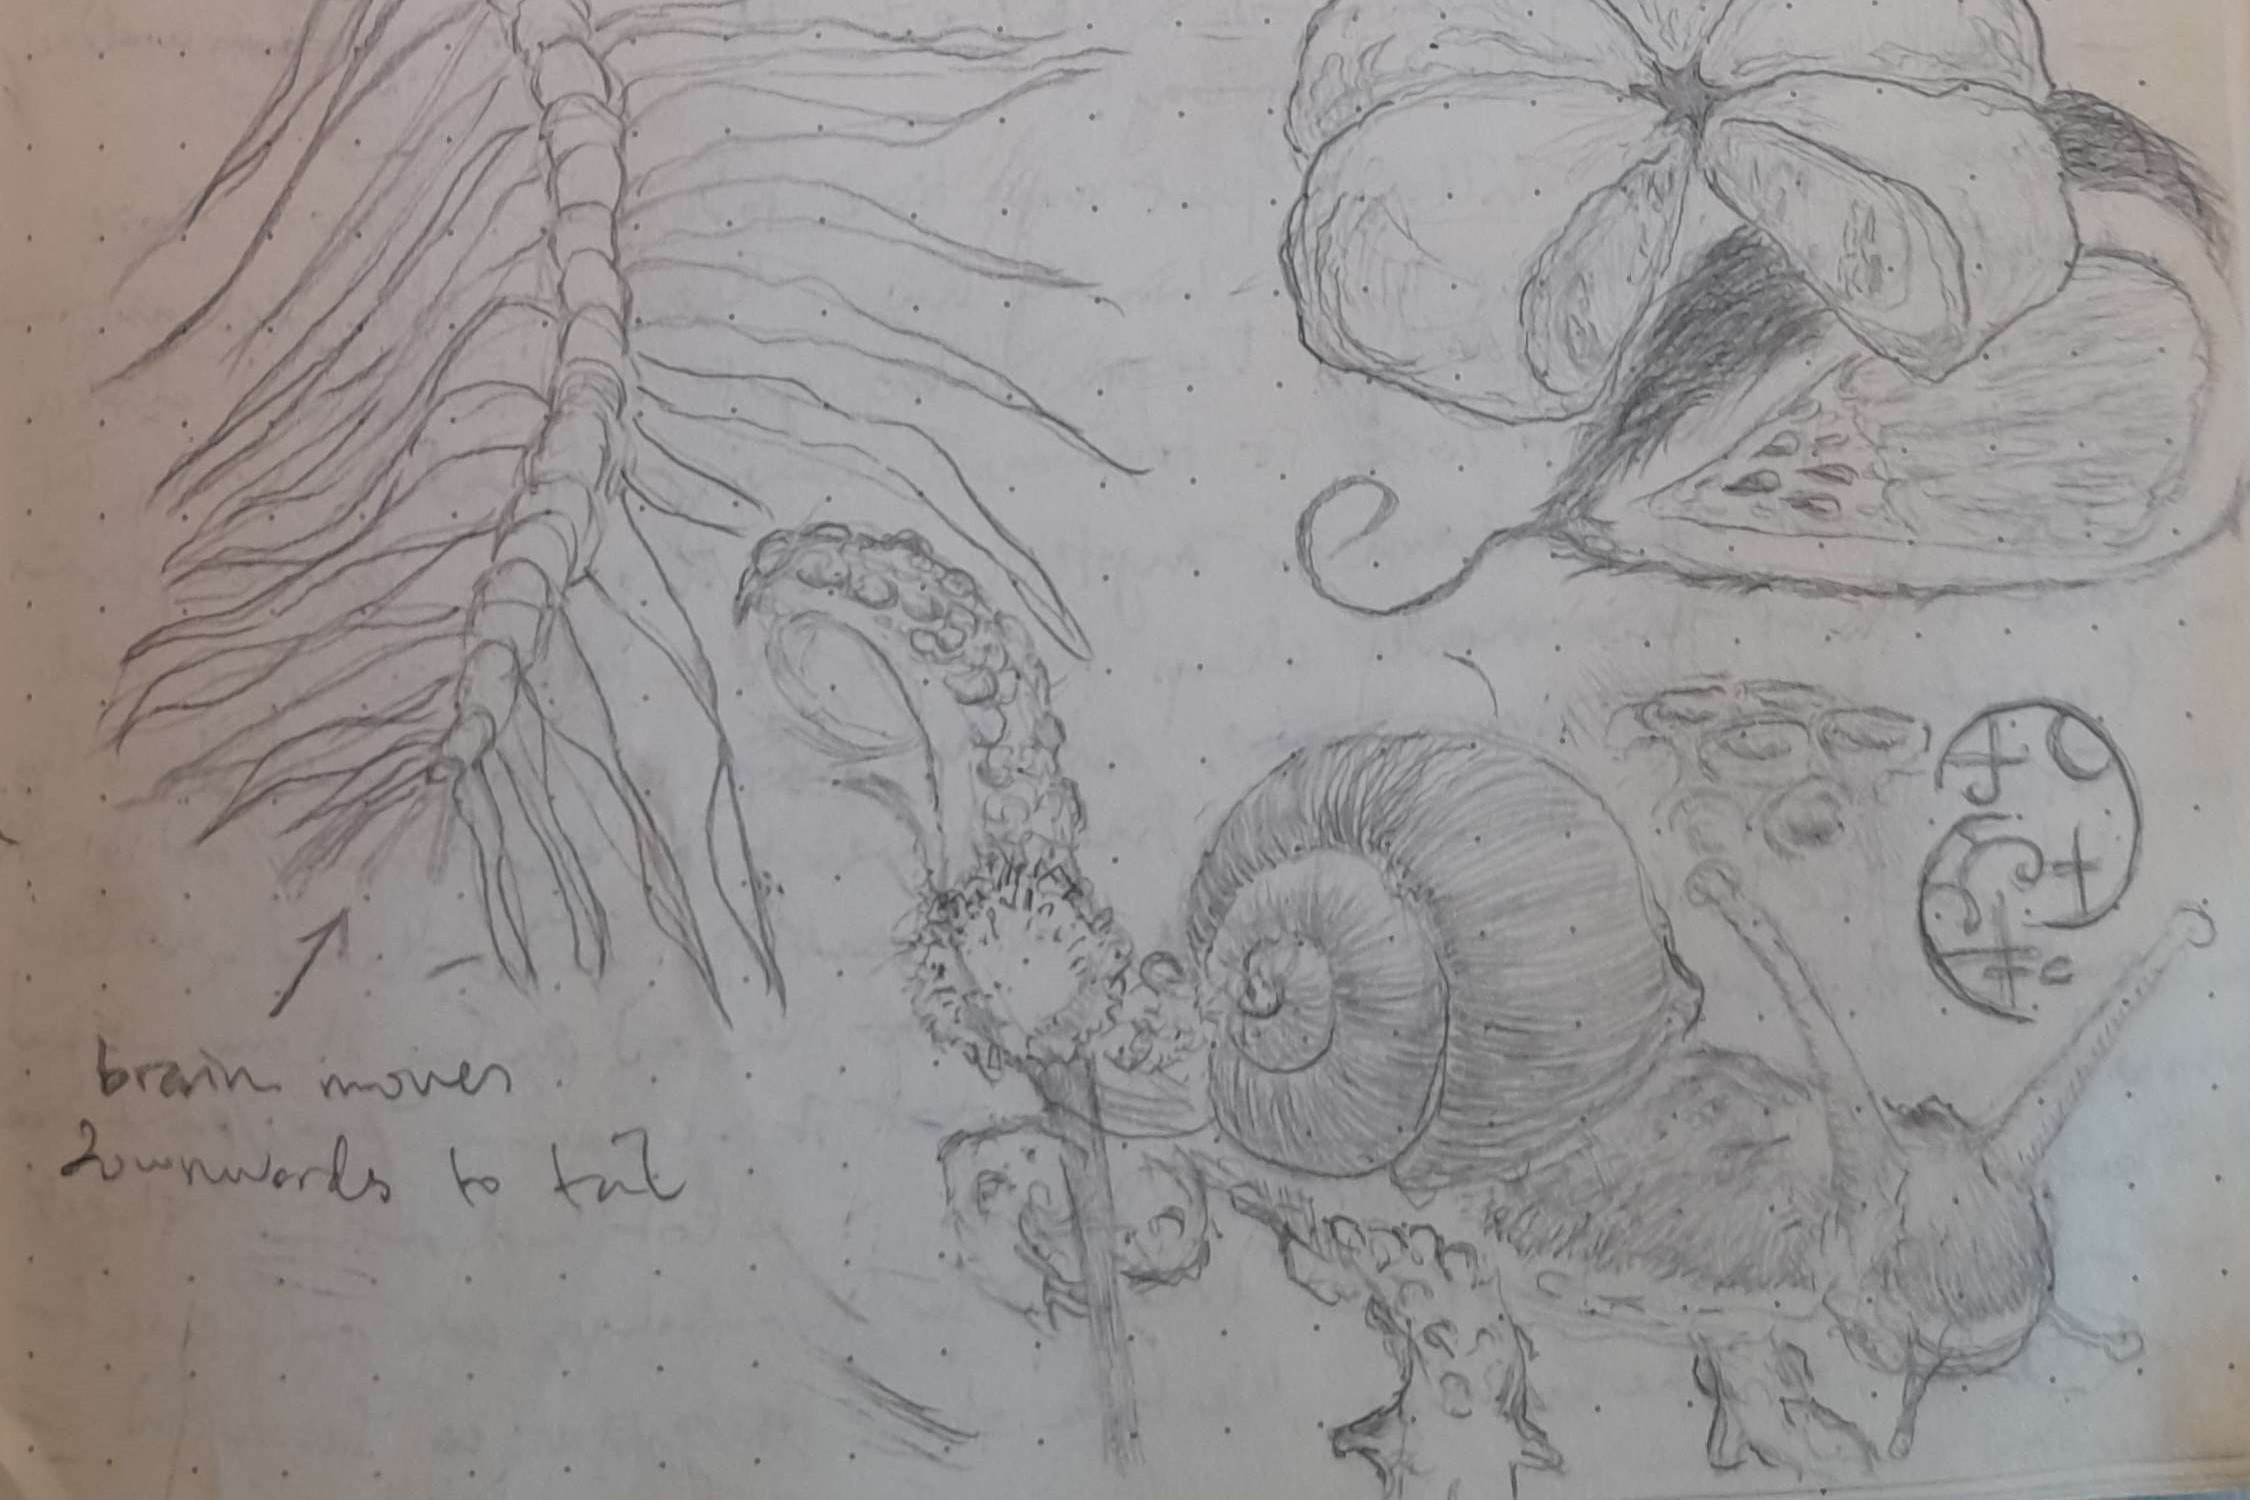 brain moves
downwards to tail